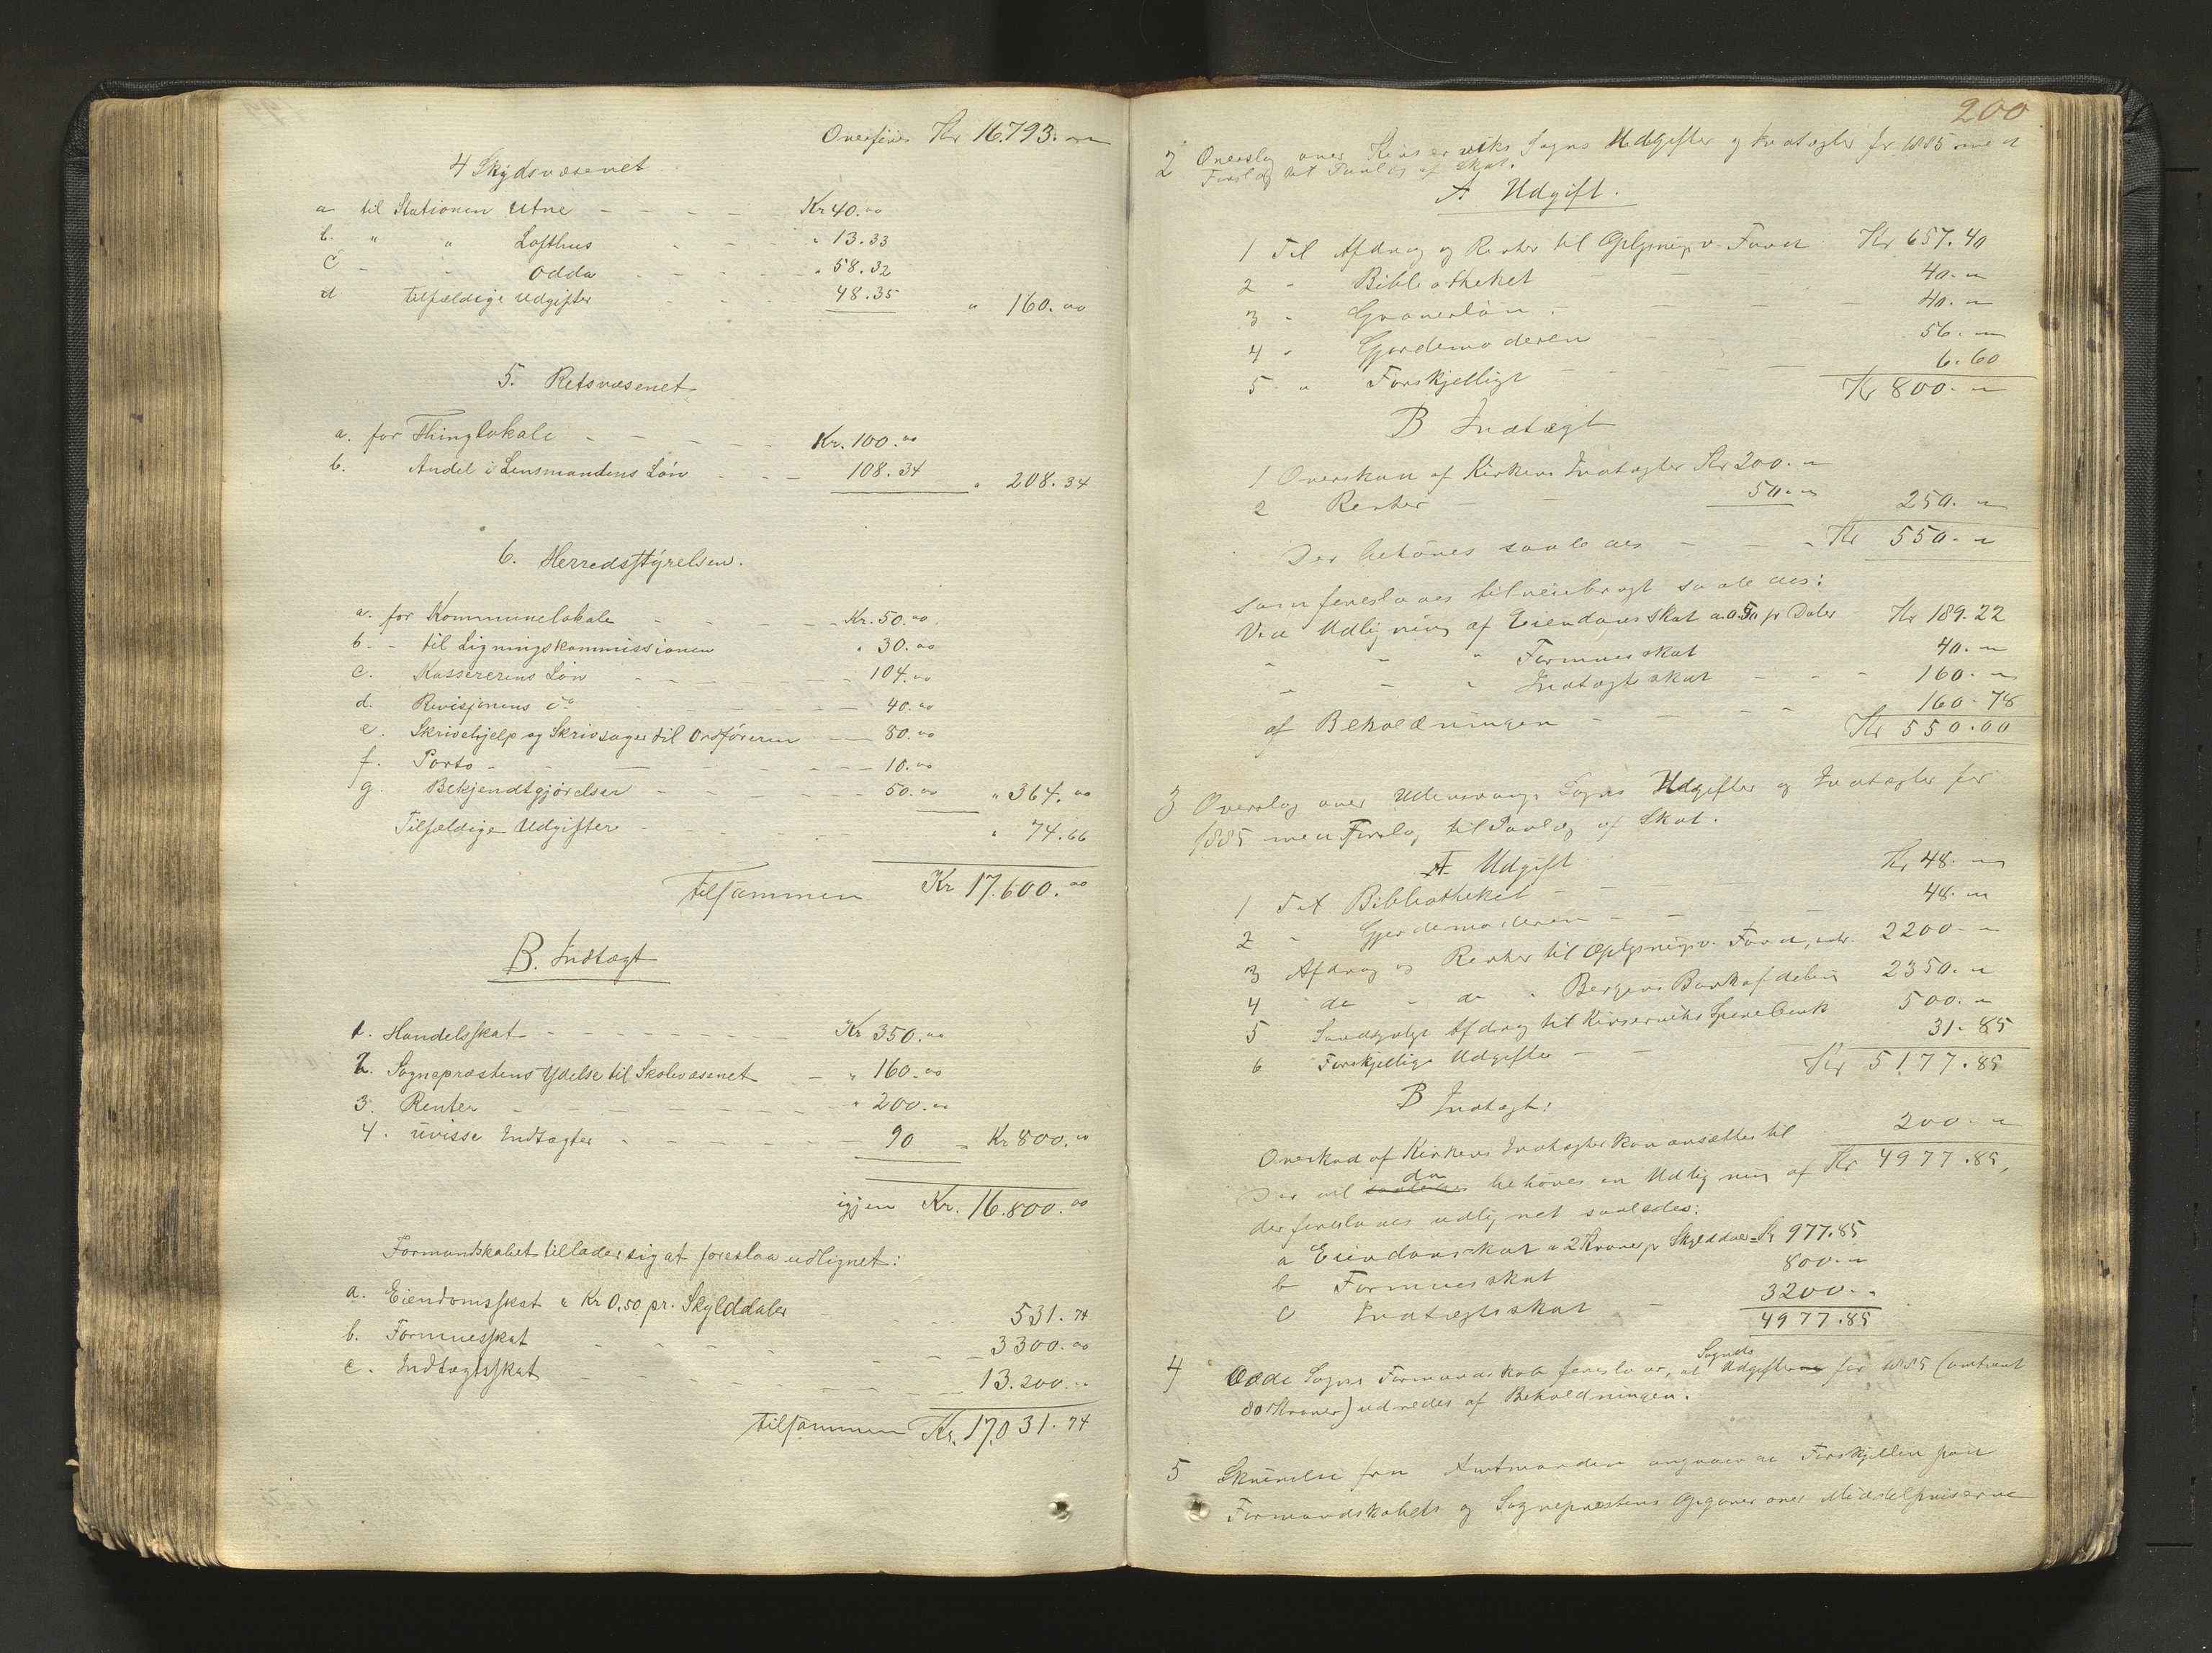 Overføres Kr 16.793. 00
4 Skydsvæsenet
a til Stationen Utne - - - - Kr 40.00
b. " " Lofthus - - - " 13.33
c - - Odda - - - - - " 58.32
d tilfældige Udgifter - - - 48.35 " 160.00
5. Retsvæsenet
a. for Thinglokale - - - - - Kr. 100.00
b. Andel i Lensmandens Løn - - - 108.34 " 208.34
6. Herredsstyrelsen.
a. for Kommunelokale - - - - Kr. 50.00
b. - til Ligningskommissionen " 30.00
c. Kassererens Løn - - - - - - 104.00
d. Revisjonens do - - - - - 40.00
e. Skrivehjelp og Skrivsager til Ordføreren - - 80.00
f. Porto - - - - - - - - 10.00
g. Bekjendtgjørelser - - - - - - 50.00 " 364.00
Tilfældige Udgifter - - - - " 74.66
tilsammen Kr 17.600.00
B. Indtægt
1. Handelsskat - - - - - - - Kr 350.00
2. Sognepræstens Ydelse til Skolevæsenet - " 160.00
3. Renter - - - - - - - - " 200.00
4. uvisse Indtægter - - - - - - 90 = Kr 800.00
igjen Kr. 16.800.00
Formandskabet tillader sig at foreslaa udlignet:
a. Eiendomsskat a Kr 0,50 pr. Skylddaler - - - 531.74
b. Formuesskat - - - - - - - 3300.00
c. Indtægtsskat - - - - - - - 13.200.00
tilsammen Kr. 17,031.74
200
2 Overslag over Kinserviks Sogns Udgifter og Indtægter for 1885 med
Forslag til Paalæg af Skat.
A Udgift.
1 Til Afdrag og Renter til Oplysningsv. Fond Kr 657.40
2 - Bibliotheket - - - 40.00
3 - Graverløn - - - 40.00
4 - Gjordemoderen - - - 56.00
5 - Forskjelligt - - - 6.60
Kr 800.00
B Indtægt
1 Overskud af Kirkens Indtægter Kr 200.00
2 Renter - - 50.00 250.00
Der behøves saaledes - - - Kr 550.00
som foreslaaes tilveiebragt saaledes:
Ved Udligning af Eiendomsskat a 0.50 pr Daler Kr 189.22
" " " Formuesskat 40.00
" " " Indtægtsskat - - - 160.00
af Beholdningen - - - - 160.78
Kr 550.00
3 Overslag over Ullensvangs Sogns Udgifter og Indtægter for
1885 med Forslag til Paalæg af Skat.
A Udgift
1 Til Bibliotheket - - Kr 48.00
2 - Gjordemoderen - - - - 48.00
3 Afdrag og Renter til Oplysningsv. Fond, 2200.00
4 do - do - Bergens Bankafdeling 2350.00
5 Sandsynligt Afdrag til Kinserviks Sparebank 500.00
6 Forskjellige Udgifter - - 31.85
Kr 5177.85
B Indtægt:
Overskud af Kirkens Indtægter kan ansættes til 200.00
da
Der vil saaledes behøves en Udligning af Kr 4977.85,
der foreslaaes udlignet saaledes:
a Eiendomsskat a 2 Kroner pr Skylddaler = Kr 977.85
b Formuesskat 800.00
c Indtægtsskat - 3200.00
4977.85
Sognets
4 Odde Sogns Formandskab foreslaar, at Udgifterne for 1885 (omtrent
80 Kroner) udredes af Beholdningen.
5 Skrivelse fra Amtmanden angaaende Forskjellen paa
Formandskabets og Sognepræstens Opgaver over Middelpriserne